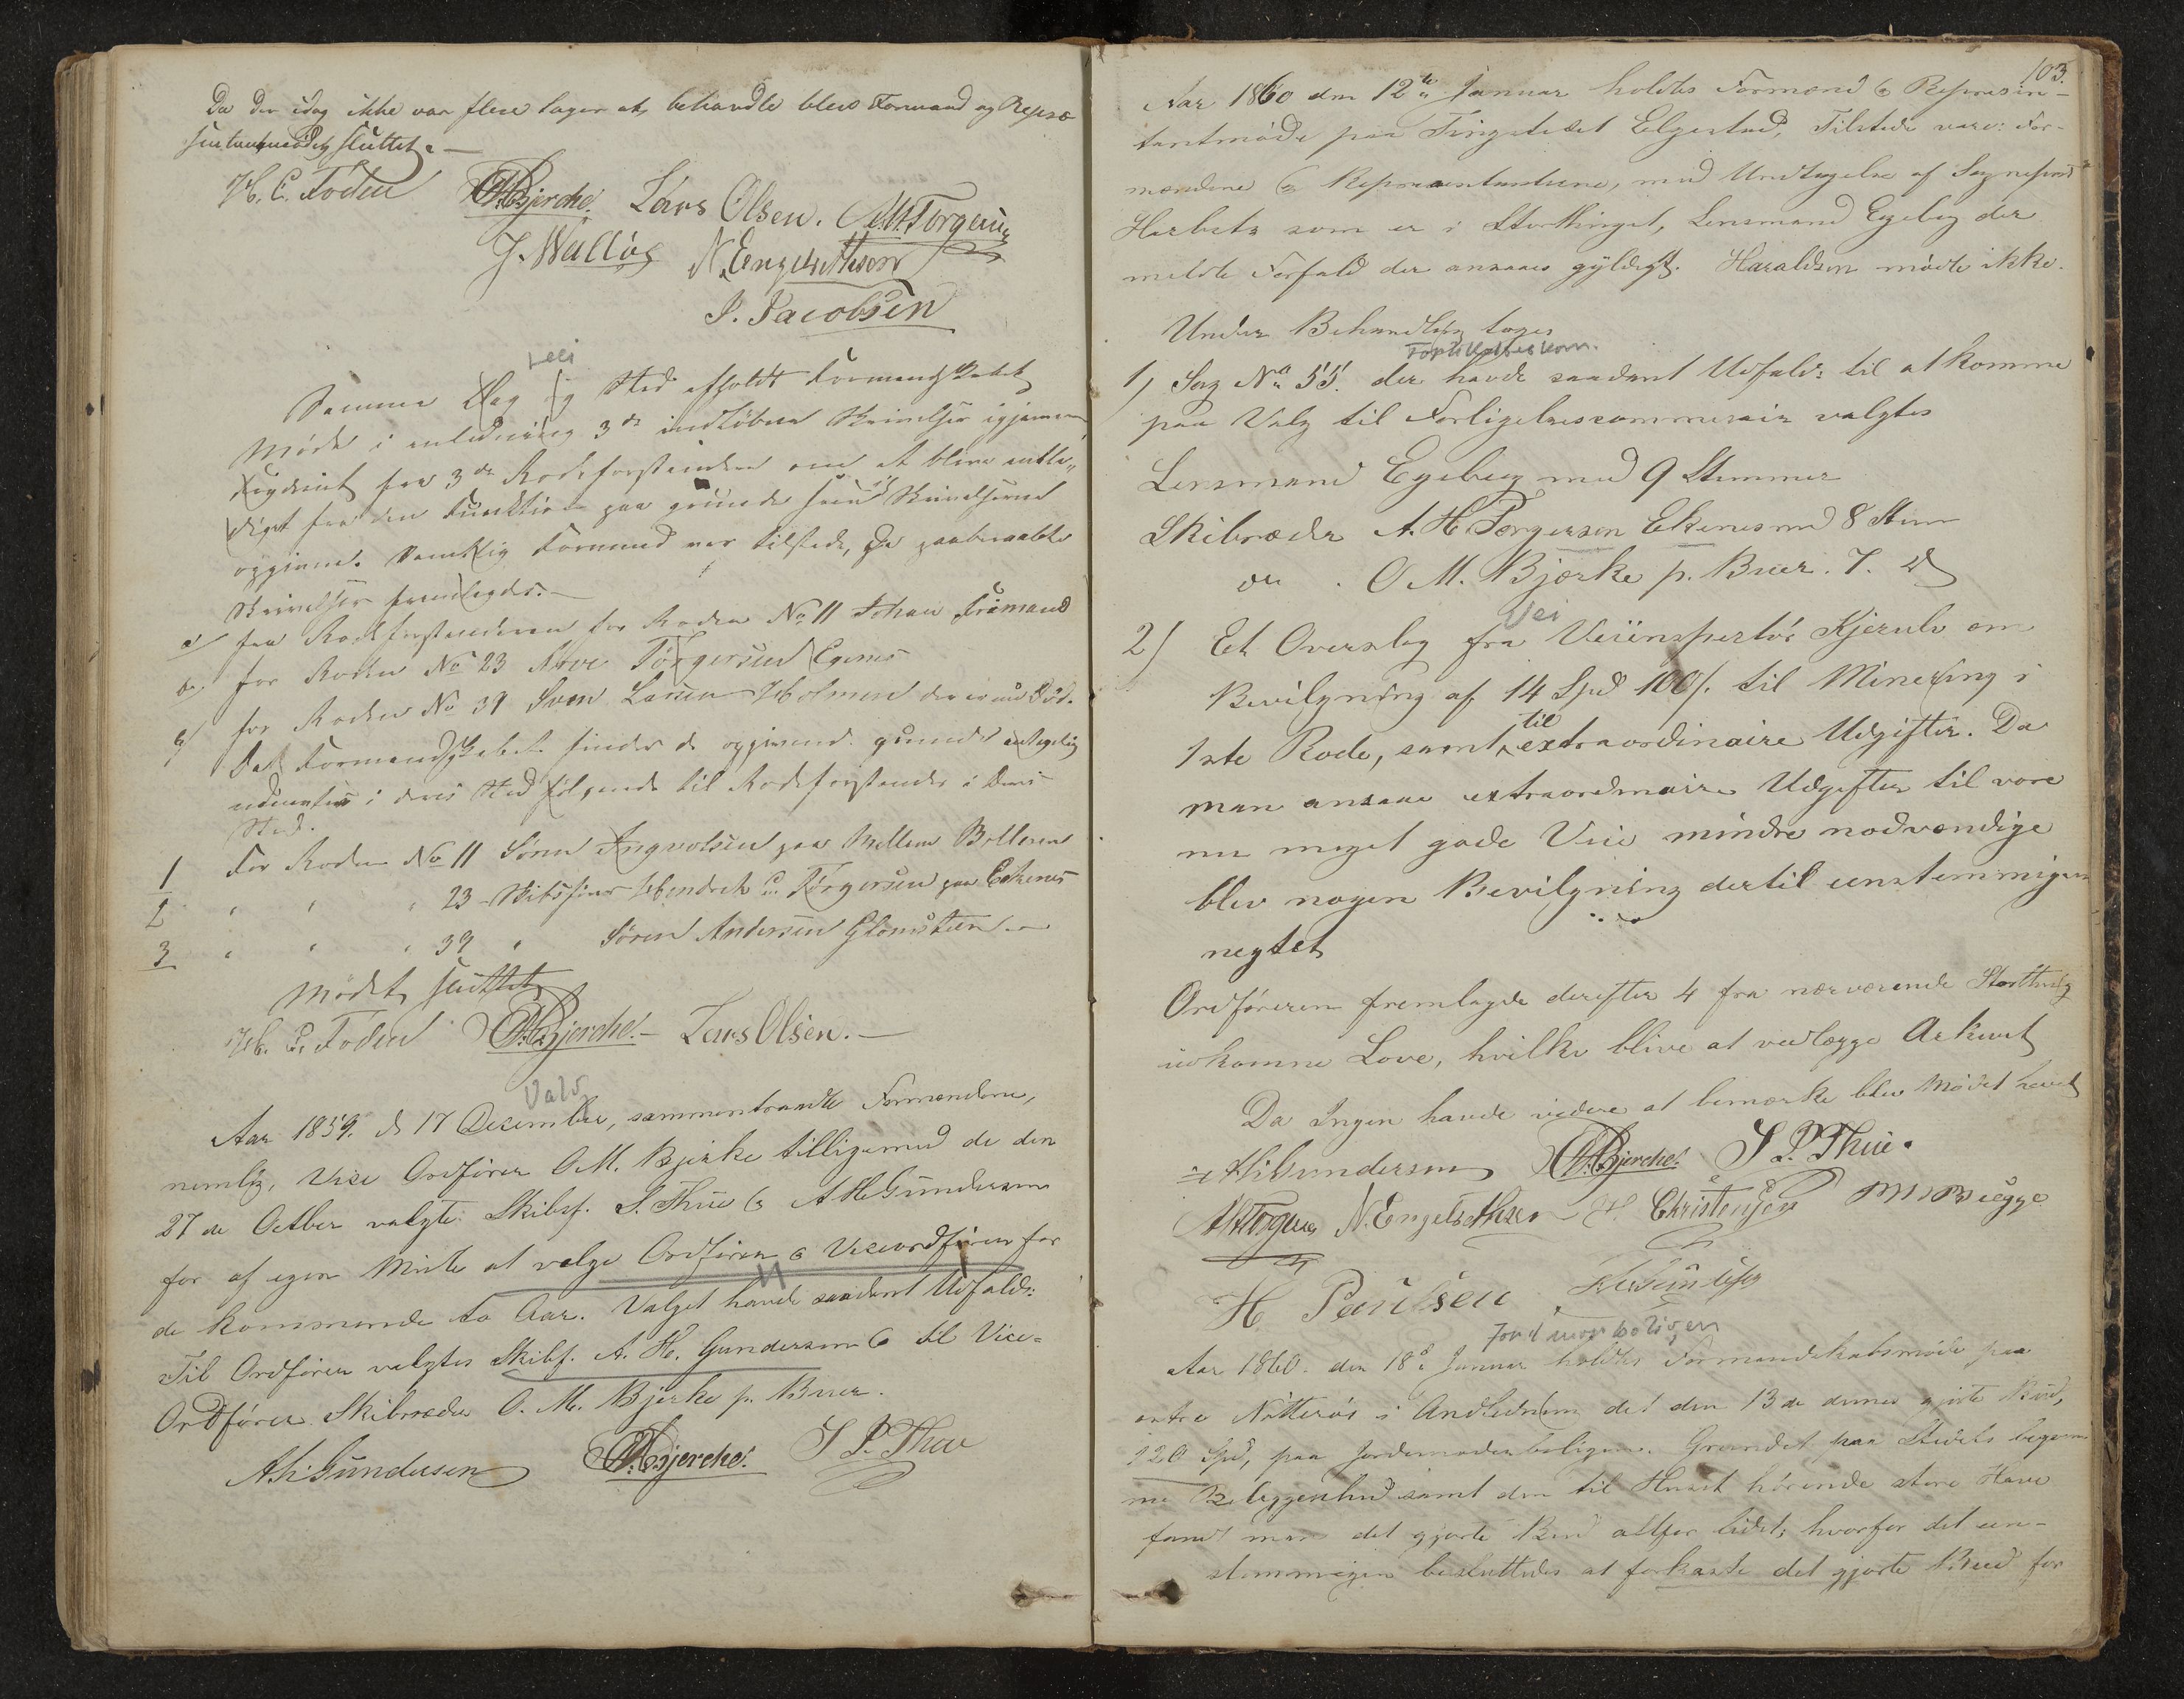 Da der idag ikke var flere sager at behandle blev Formand og Repræ
sentantmødet sluttet. —
H. C. Foden OMBjerche. Lars Olsen. AHTorgersen
J. Walløs N. Engebrethsen
I. Jacobsen
vei
Samme Dag og Sted afholdt Formandskabet
Møde i anledning 3de indløbne Skrivelser igjennem
Fogderiet fra 3de Rodeforstandere om at blive entle,,
diget fra den Funktion paa grunde som i Skrivelserne
opgivne. Samtlig Formænd var tilstede, De paaberaabte
Skrivelser fremlagdes. —
a/ fra Rodeforstanderen for Roden No 11 Johan
b/ for Roden No 23 Torgersen Egenes
c/ for Roden No 39 Svен Larsen Holmen der er ved Død.
Da Formandskabet finder de opgivend grunde antagelig
udnævntes i deres Sted følgende til Rodeforstander i Deres
Sted.
1 For Roden No 11 Søren Ingvolsen paa Mellem Bolleren
2 " " " 23 - Skibsfører Hendrek C. Torgersen paa Ekenes
3 " " " 39 " Søren Andersen Glomsteen —
Mødet sluttet
H. C. Foden OMBjerche. — Lars Olsen. —
Valg
Aar 1859. d 17 Desember, sammentraadte Formændene,
nemlig, Vice Ordfører O M. Bjerke tilligemed de den
27de Octber valgte Skibsf. S. Thue & A H Gundersen
for af egen Midte at vælge Ordfører & Viceordfører for
de kommende to Aar. Valget havde saadant Udfald:
Til Ordfører valgtes Skibsf. A. H. Gundersen & til Vice-
Ordfører Skibsreder O. M. Bjerke p. Buer.
AHGundersen OMBjerche. S P. Thue
103.
Aar 1860 den 12te Januar holdtes Formænd & Represen-
tantmøde paa Tingstedet Elgestad, Tilstede vare: For-
mændene & Representanterne, med Undtagelse af Sogneprest
Harbitz som er i Storthinget, Lensmand Egeberg der
meldte Forfald der ansaaes gyldigt. Haraldsen mødte ikke.
Under Behandling toges
Forlikelseskom.
1) Sag No 55. der havde saadant Udfald: til at komme
paa Valg til Forligelsescommisair valgtes
Lensmand Egeberg med 9 Stemmer
Skibsreder A. H. Torgersen Ekenes med 8 Stem
do . O M. Bjerke p. Buer. 7. d
Vei
2) Et Overslag fra Veiinspektør Kjerulv om
Bevilgning af 14 Spd 100/. til Minering i
1ste Rode, samt til extraordinaire Udgifter. Da
man ansaae extraordinaire Udgifter til vore
nu meget gode Veie mindre nødvendige
blev nogen Bevilgning dertil eenstemmigen
negtet
Ordføreren fremlagde derefter 4 fra nærværende Storthing
udkomne Love, hvilke blive at vedlægge Arkivet
Da Ingen havde videre at bemærke blev Mødet hævet
AHGundersen OMBjerche. S P. Thue.
AHTorgersen N. Engebrethsen H. Christensen MMBugge
H Paulsen
Jordmorboligen
Aar 1860. den 18de Januar holdtes Formandskabsmøde paa
øvtre Nøtterøe i Andledning det den 13de dennes gjorte Bud,
120 Spd, paa Jordemoderboligen. Grundet paa Stedets beqvem-
me Beliggenhed samt den til Huset hørende store Have
fandt man det gjorte Bud altfor lidet; hvorfor det een-
stemmigen besluttedes at forkaste det gjorte Bud for